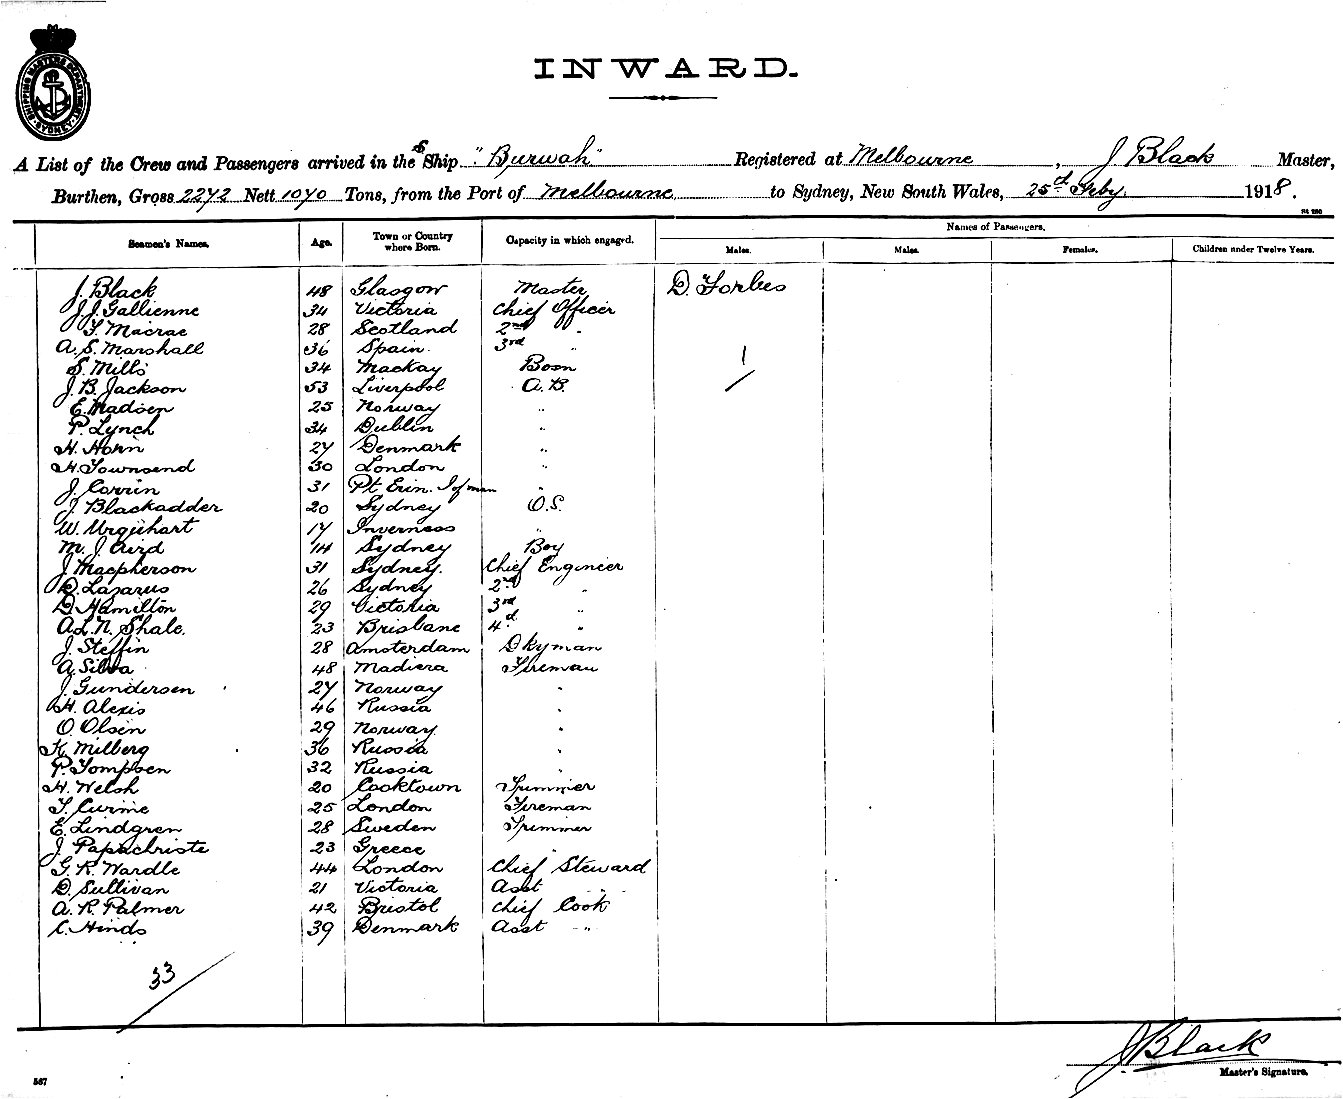 SHIPPING MASTERS DEPARTMENT SYDNEY
INWARD.
A List of the Crew and Passengers arrived in the S Ship "Burwah" Registered at Melbourne, J Black Master,
Burthen, Gross 2272 Nett 1070 Tons, from the Port of Melbourne to Sydney, New South Wales, 25th Feby. 1918.
Seamen's Names. Age. Town or Country where Born. Capacity in which engaged. Names of Passengers.
Males. Males. Females. Children under Twelve Years.
J. Black 48 Glasgow Master D. Forbes
J. J. Gallienne 34 Victoria Chief Officer
T. Macrae 28 Scotland 2nd "
A. S. Marshall 36 Spain. 3rd "
S. Mills 34 Mackay Bosn 1
J. B. Jackson 53 Liverpool A.B.
E. Madsen 25 Norway "
P. Lynch 34 Dublin "
H. Horn 27 Denmark "
H. Townsend 30 London "
J. Corrin 31 Pt Erin. I of man "
J. Blackadder 20 Sydney O.S.
W. Urquhart 17 Inverness "
M. J. Aird 14 Sydney Boy
J. Macpherson 31 Sydney. Chief Engineer
D. Lazarus 26 Sydney 2nd "
D. Hamilton 29 Victoria 3rd "
A. L. N. Shale. 23 Brisbane 4d "
J. Steffin 28 Amsterdam Dkyman
A. Silva 48 Madiera Fireman
J. Gundersen 27 Norway "
H. Alexis 46 Russia "
O. Olsen 29 Norway. "
K. Milberg 36 Russia "
P. Tompsen 32 Russia "
H. Welsh 20 Cooktown Trimmer
T. Currie 25 London Fireman
E. Lindgren 28 Sweden Trimmer
J. Papachriste 23 Greece "
G. R. Wardle 44 London Chief Steward
D. Sullivan 21 Victoria Asst "
A. R. Palmer 42 Bristol Chief Cook
C. Hinds 39 Denmark Asst "
33
J. Black
Master's Signature.
567